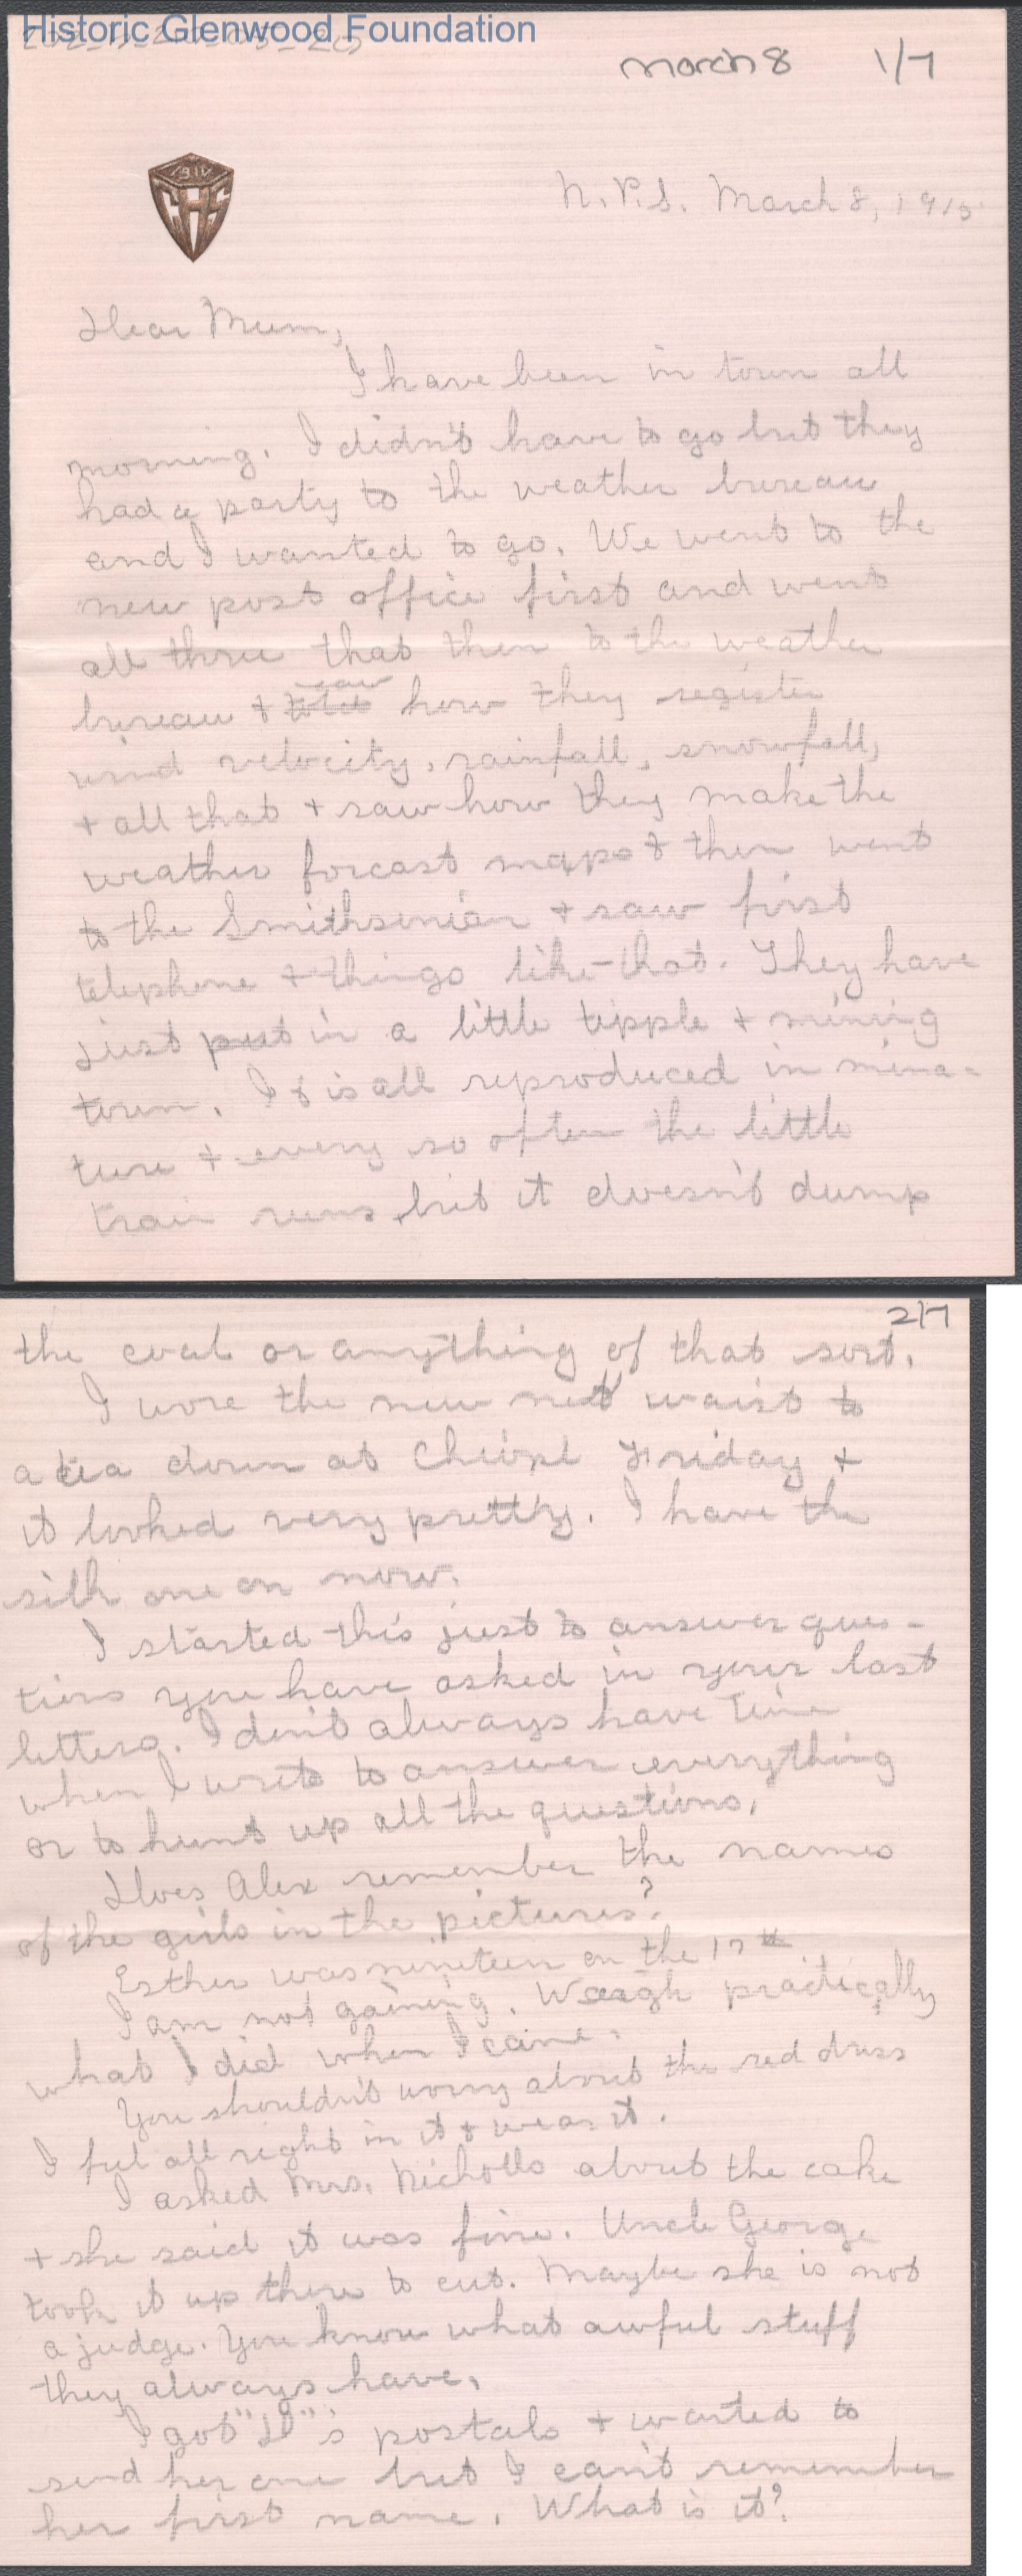 Historic Glenwood Foundation
March 8 1/7
1910
N.P.S. March 8, 1915
Dear Mum,
I have been in town all
morning. I didn't have to go but they
had a party to the weather bureau
and I wanted to go. We went to the
new post office first and went
all thru that then to the weather
bureau + saw how they register
wind velocity, rainfall, snowfall,
+ all that + saw how they make the
weather forcast maps + then went
to the Smithsonian + saw first
telephone + things like that. They have
just put in a little tipple + mining
town. It is all reproduced in mina-
ture + every so often the little
train runs but it doesn't dump
2/7
the coal or anything of that sort.
I wore the new net waist to
a tea down at Friday +
it looked very pretty. I have the
silk one on now.
I started this just to answer ques-
tions you have asked in your last
letters. I don't always have time
when I write to answer everything
or to hunt up all the questions.
Does Alex remember the names
of the girls in the pictures?
Esther was nineteen on the 17th.
I am not gaining. Weigh practically
what I did when I came.
You shouldn't worry about the red dress
I feel all right in it + wear it.
I asked Mrs. Nicholls about the cake
+ she said it was fine. Uncle George
took it up there to cut. Maybe she is not
a judge. You know what awful stuff
they always have.
I got "D"'s postals + wanted to
send her one but I can't remember
her first name. What is it?